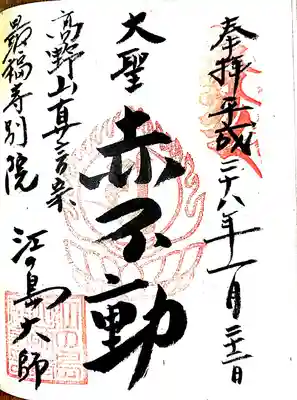 奉拝平成二十八年十一月二十二日
大聖
赤不動
高野山真言宗
最福寺別院
江の島大師